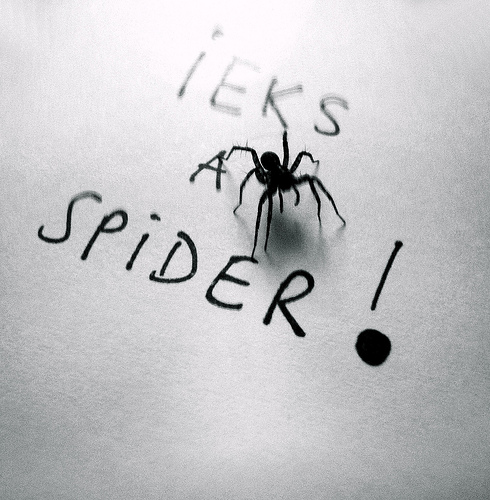 iEKS
A
SPiDER!